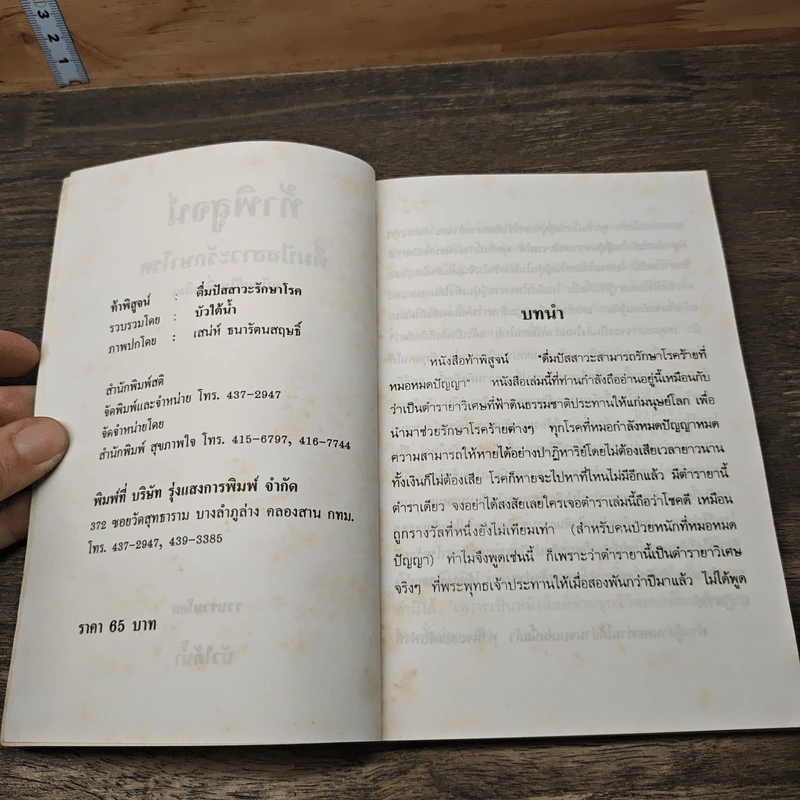 3 2 1
ท้าพิสูจน์ : ดื่มปัสสาวะรักษาโรค
รวบรวมโดย : บัวใต้น้ำ
ภาพปกโดย : เสน่ห์ ธนารัตนสฤษฎิ์
สำนักพิมพ์สติ
จัดพิมพ์และจำหน่าย โทร. 437-2947
จัดจำหน่ายโดย
สำนักพิมพ์ สุขภาพใจ โทร. 415-6797, 416-7744
พิมพ์ที่ บริษัท รุ่งแสงการพิมพ์ จำกัด
372 ซอยวัดสุทธาราม บางลำภูล่าง คลองสาน กทม.
โทร. 437-2947, 439-3385
ราคา 65 บาท
บทนำ
หนังสือท้าพิสูจน์ "ดื่มปัสสาวะสามารถรักษาโรคร้ายที่
หมอหมดปัญญา" หนังสือเล่มนี้ที่ท่านกำลังถืออ่านอยู่นี้เหมือนกับ
ว่าเป็นตำรายาวิเศษที่ฟ้าดินธรรมชาติประทานให้แก่มนุษย์โลก เพื่อ
นำมาช่วยรักษาโรคร้ายต่างๆ ทุกโรคที่หมอกำลังหมดปัญญาหมด
ความสามารถให้หายได้อย่างปาฏิหาริย์โดยไม่ต้องเสียเวลายาวนาน
ทั้งเงินก็ไม่ต้องเสีย โรคก็หายจะไปหาที่ไหนไม่มีอีกแล้ว มีตำรายานี้
ตำราเดียว จงอย่าได้สงสัยเลยใครเจอตำราเล่มนี้ถือว่าโชคดี เหมือน
ถูกรางวัลที่หนึ่งยังไม่เทียมเท่า (สำหรับคนป่วยหนักที่หมอหมด
ปัญญา) ทำไมจึงพูดเช่นนี้ ก็เพราะว่าตำรายานี้เป็นตำรายาวิเศษ
จริงๆ ที่พระพุทธเจ้าประทานให้เมื่อสองพันกว่าปีมาแล้ว ไม่ได้พูด